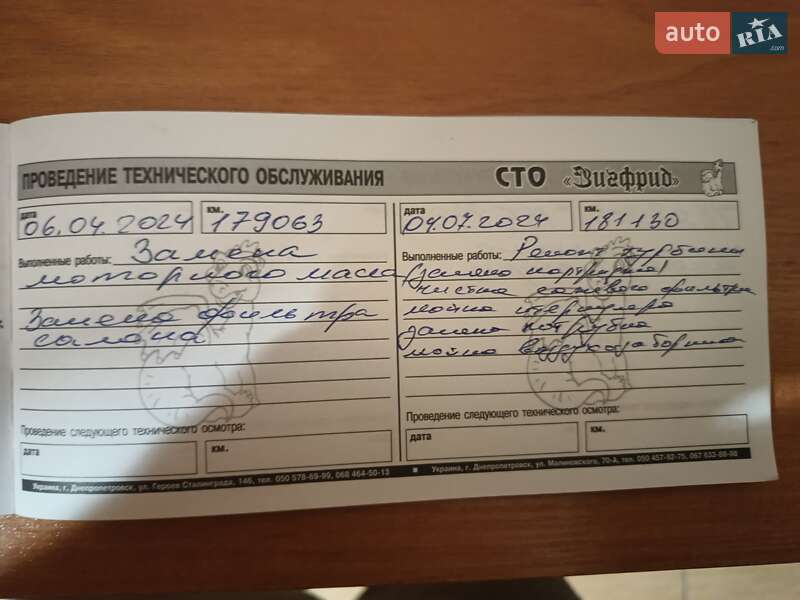 auto RIA .com
ПРОВЕДЕНИЕ ТЕХНИЧЕСКОГО ОБСЛУЖИВАНИЯ СТО «Зигфрид»
дата 06.04.2024 км. 179063
Выполненные работы: Замена
моторного масла
Замена фильтра
салона
Проведение следующего технического осмотра:
дата км.
Украина, г. Днепропетровск, ул. Героев Сталинграда, 146, тел. 050 578-69-99, 068 464-50-13
дата 04.07.2024 км. 181130
Выполненные работы: Ремонт турбины
(замена картриджа)
чистка сажевого фильтра
мойка интеркулера
замена патрубка
мойка воздухозаборника
Проведение следующего технического осмотра:
дата км.
Украина, г. Днепропетровск, ул. Малиновского, 70-А, тел. 050 457-82-75, 067 632-88-98